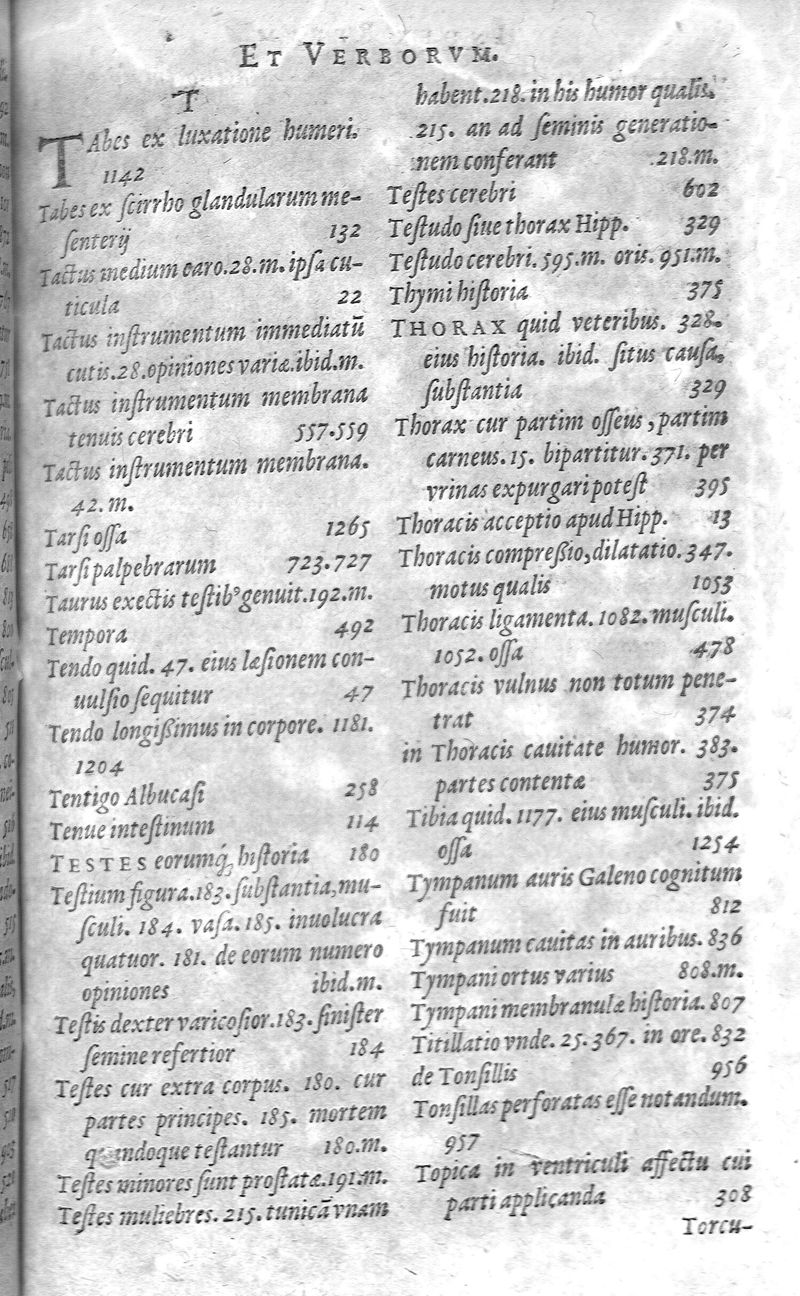 ET VERBORVM.
T
TAbes ex luxatione humeri.
1142
Tabes ex ſcirrho glandularum me-
ſenterij 132
Tactus medium caro.28.m. ipſa cu-
ticula 22
Tactus inſtrumentum immediatū
cutis.28.opiniones variæ.ibid.m.
Tactus inſtrumentum membrana
tenuis cerebri 557.559
Tactus inſtrumentum membrana.
42.m.
Tarſi oſſa 1265
Tarſi palpebrarum 723.727
Taurus exectis teſtibꝰ genuit.192.m.
Tempora 492
Tendo quid. 47. eius læſionem con-
uulſio ſequitur 47
Tendo longißimus in corpore. 1181.
1204
Tentigo Albucaſi 258
Tenue inteſtinum 114
TESTES eorumq́; hiſtoria 180
Teſtium figura.183.ſubſtantia,mu-
ſculi. 184. vaſa.185. inuolucra
quatuor. 181. de eorum numero
opiniones ibid.m.
Teſtis dexter varicoſior.183.ſiniſter
ſemine refertior 184
Teſtes cur extra corpus. 180. cur
partes principes. 185. mortem
quandoque teſtantur 180.m.
Teſtes minores ſunt proſtatæ.191.m.
Teſtes muliebres. 215. tunicā vnam
habent.218. in his humor qualis.
215. an ad ſeminis generatio-
nem conferant 218.m.
Teſtes cerebri 602
Teſtudo ſiue thorax Hipp. 329
Teſtudo cerebri. 595.m. oris. 951.m.
Thymi hiſtoria 375
THORAX quid veteribus. 328.
eius hiſtoria. ibid. ſitus cauſa,
ſubſtantia 329
Thorax cur partim oſſeus, partim
carneus. 15. bipartitur. 371. per
vrinas expurgari poteſt 395
Thoracis acceptio apud Hipp. 13
Thoracis compreßio, dilatatio. 347.
motus qualis 1053
Thoracis ligamenta. 1082. muſculi.
1052. oſſa 478
Thoracis vulnus non totum pene-
trat 374
in Thoracis cauitate humor. 383.
partes contentæ 375
Tibia quid. 1177. eius muſculi. ibid.
oſſa 1254
Tympanum auris Galeno cognitum
fuit 812
Tympanum cauitas in auribus. 836
Tympani ortus varius 808.m.
Tympani membranulæ hiſtoria. 807
Titillatio vnde. 25. 367. in ore. 832
de Tonſillis 956
Tonſillas perforatas eſſe notandum.
957
Topica in ventriculi affectu cui
parti applicanda 308
Torcu-